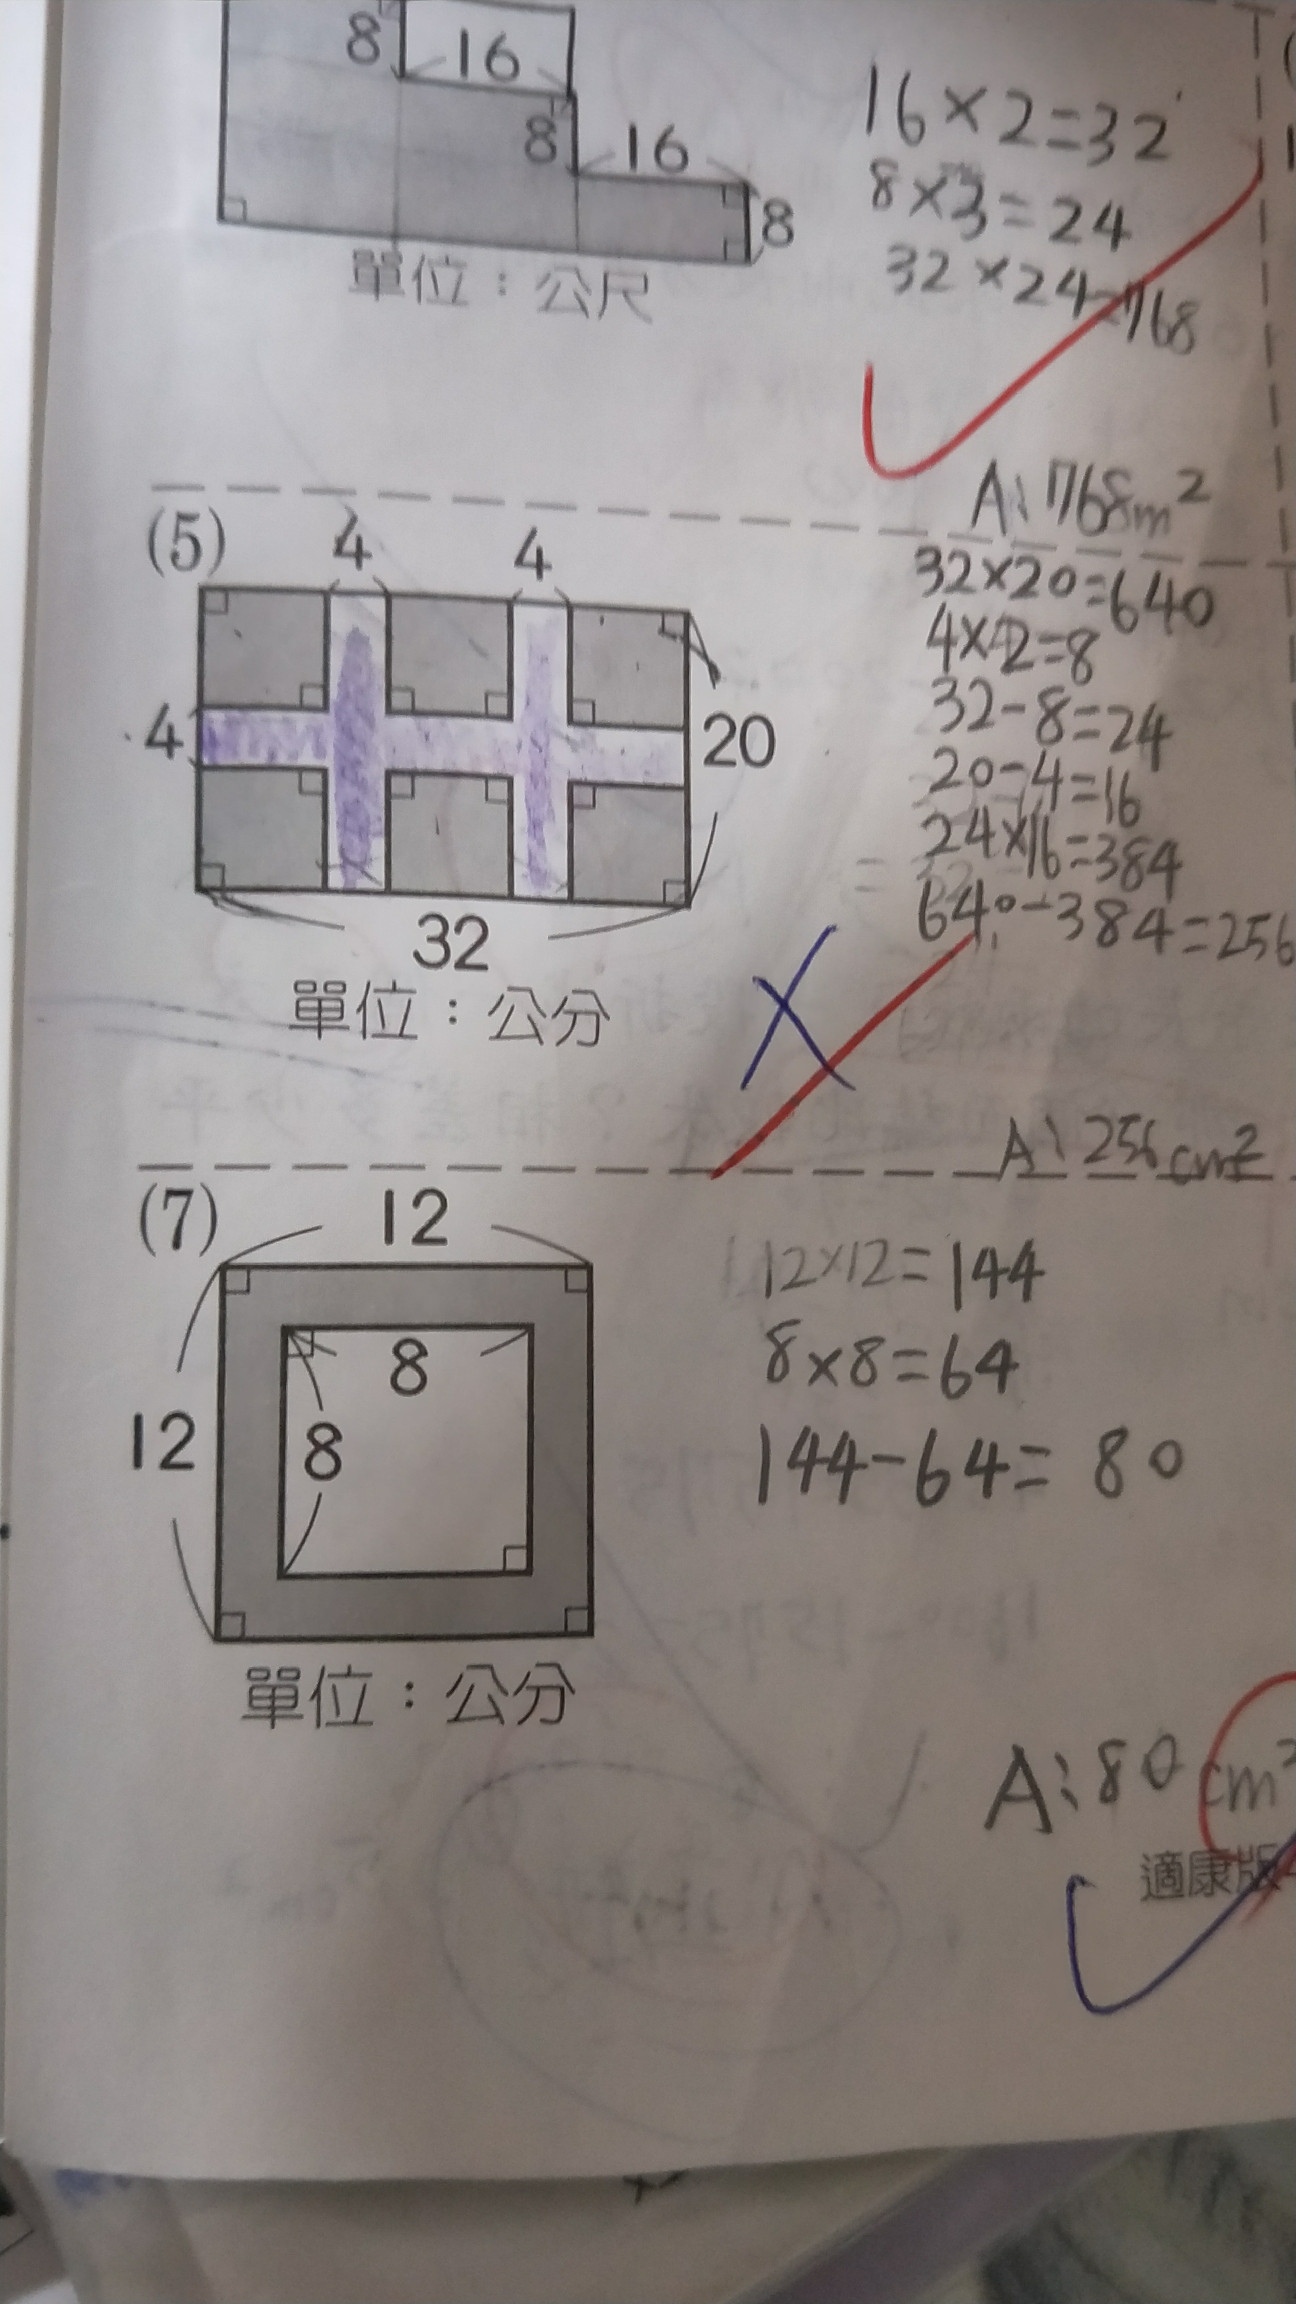 8
16
8
16
8
單位：公尺
16×2=32
8×3=24
32×24=768
A:768m²
(5)
4
4
4
20
32
單位：公分
32×20=640
4×2=8
32-8=24
20-4=16
24×16=384
640-384=256
A:256cm²
(7)
12
12
8
8
單位：公分
12×12=144
8×8=64
144-64=80
A:80cm²
適康版